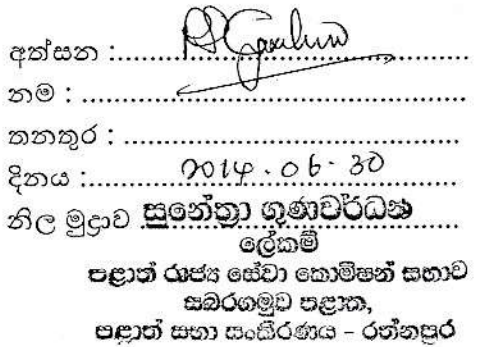 අත්සන :
නම :
තනතුර :
දිනය : 2014.06.30
නිල මුද්‍රාව සුනේත්‍රා ගුණවර්ධන
ලේකම්
පළාත් රාජ්‍ය සේවා කොමිෂන් සභාව
සබරගමුව පළාත,
පළාත් සභා සංකීරණය - රත්නපුර